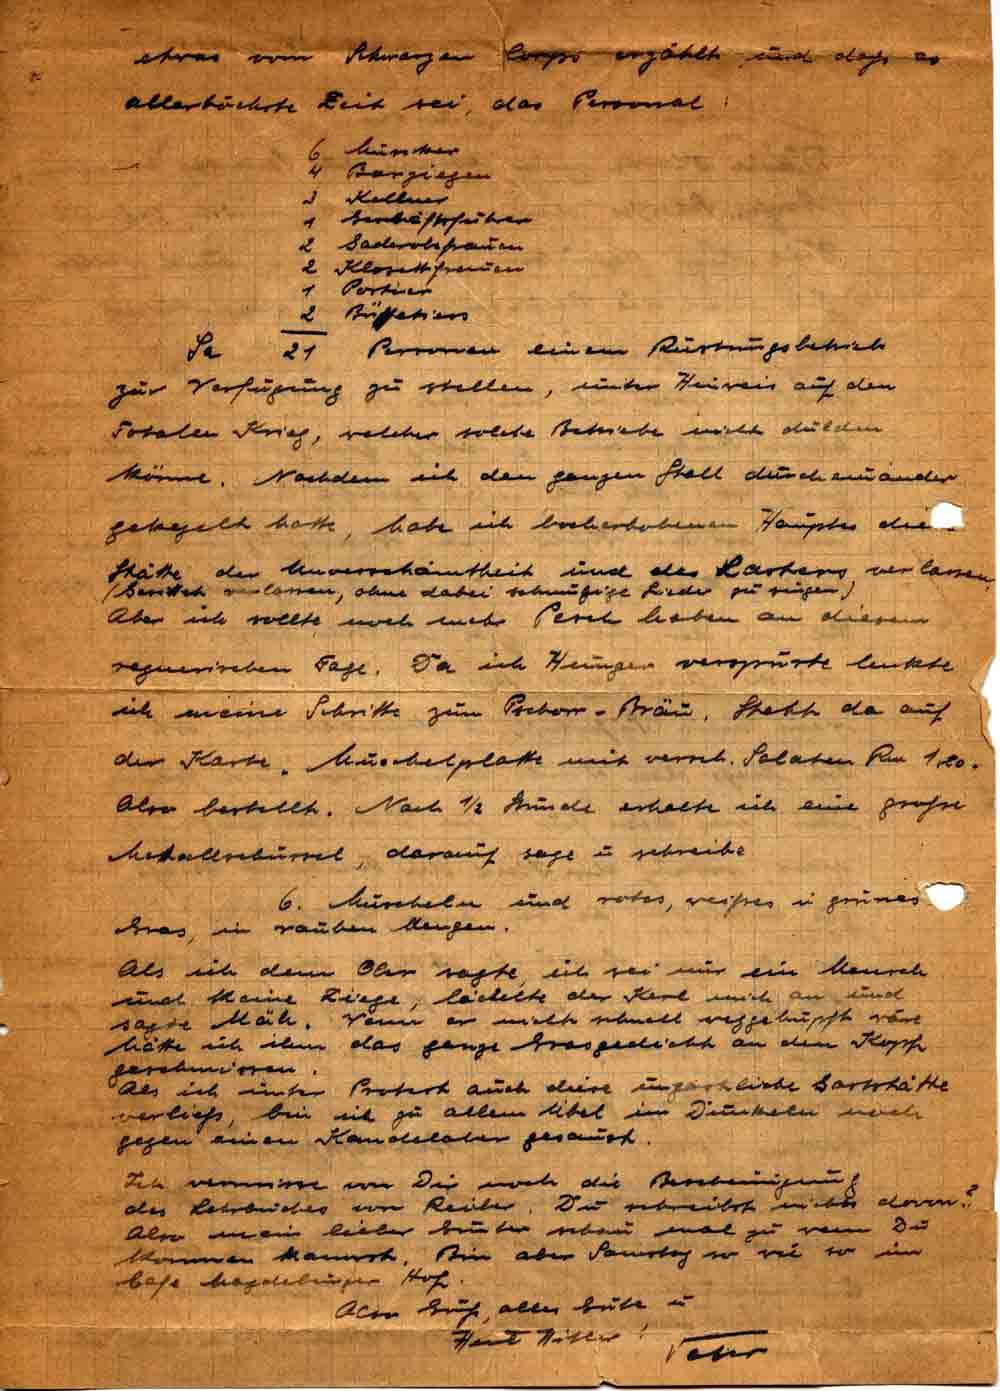 etwas vom Schwarzen Corps erzählt, und dass es
allerhöchste Zeit sei, das Personal:
6 Musiker
4 Barziegen
3 Kellner
1 Geschäftsführer
2 Gaderobefrauen
2 Klosettfrauen
1 Portier
2 Büffetiers
Sa 21 Personen einem Rüstungsbetrieb
zur Verfügung zu stellen, unter Hinweis auf den
Totalen Krieg, welcher solche Betriebe nicht dulden
könne. Nachdem ich den ganzen Stall durcheinander
gekegelt hatte, habe ich hocherhobenen Hauptes die
Stätte der Unverschämtheit und des Lasters verlassen
verlassen, ohne dabei schmutzige Lieder zu singen)
Aber ich sollte noch mehr Pech haben an diesem
regnerischen Tage. Da ich Hunger verspürte lenkte
ich meine Schritte zum Pschorr-Bräu. Steht da auf
der Karte. Muschelplatte mit versch. Salaten Rm 1,20.
Also bestellt. Nach 1/2 Stunde erhalte ich eine große
Metallschüssel, darauf sage u schreibe
6. Muscheln und rotes, weißes u grünes
Gras, in rauhen Mengen.
Als ich dem Ober sagte, ich sei nur ein Mensch
und keine Ziege, lächelte der Kerl mich an und
sagte Mäh. Wenn er nicht schnell weggehüpft wäre
hätte ich ihm das ganze Grasgedicht an den Kopf
geschmissen.
Als ich unter Protest auch diese ungastliche Gaststätte
verließ, bin ich zu allem Übel im Dunkeln noch
gegen einen Kandelaber gesaust.
Ich vermisse von Dir noch die Bescheinigung
des Lehrbuches von Reiber. Du schreibst nichts davon?
Also mein lieber Günter schau mal zu wenn Du
kommen kannst. Bin aber Samstag so wie so im
Cafe Magdeburger Hof.
Also Gruß, alles Gute u
Heil Hitler!
Vater